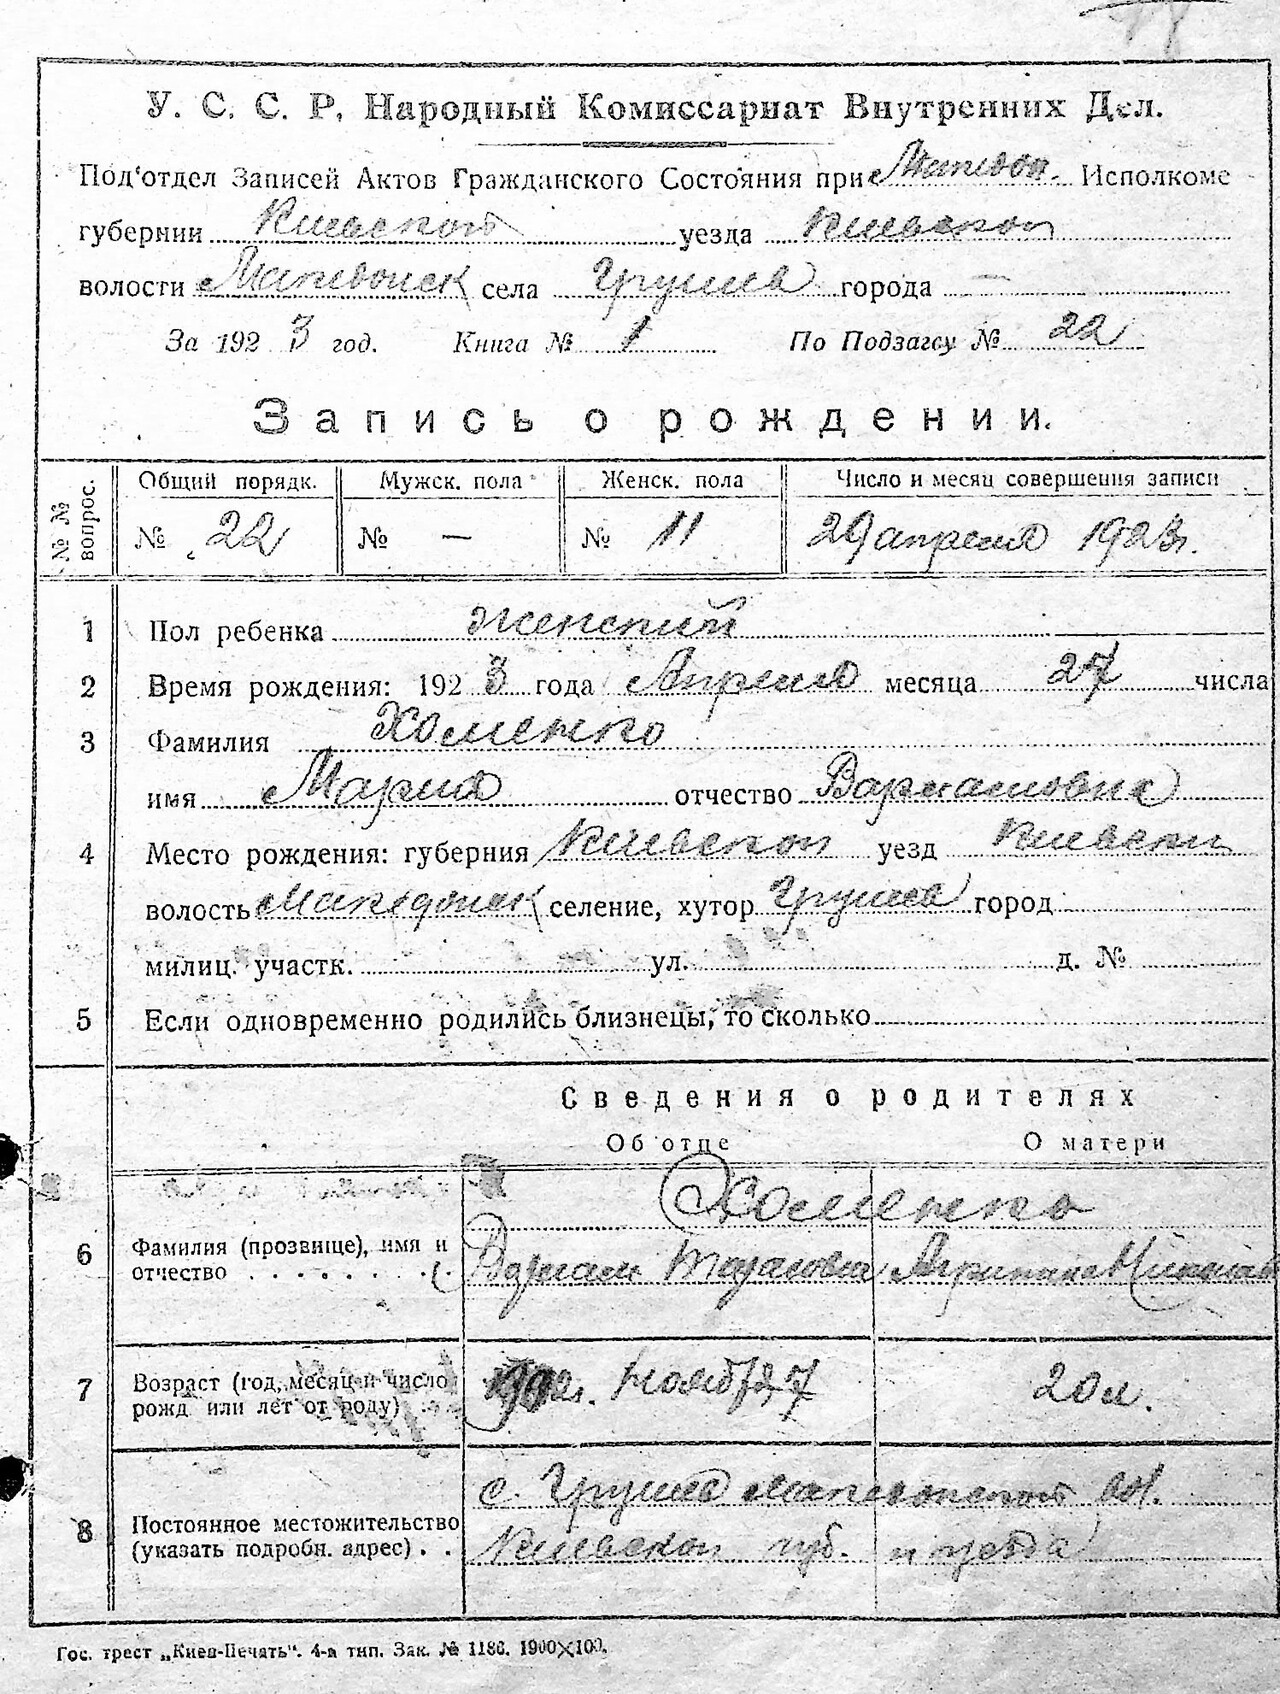 У. С. С. Р. Народный Комиссариат Внутренних Дел.
Под'отдел Записей Актов Гражданского Состояния при Македон. Исполкоме
губернии Киевской уезда Киевской
волости Македонск села Грушев города —
За 1923 год. Книга № 1 По Подзагсу № 22
Запись о рождении.
№ № вопрос. Общий порядк. Мужск. пола Женск. пола Число и месяц совершения записи
№ 22 № — № 11 29 апреля 1923г.
1 Пол ребенка женский
2 Время рождения: 1923 года Апреля месяца 27 числа
3 Фамилия Хоменко
имя Мария отчество Варламовна
4 Место рождения: губерния Киевской уезд Киевски
волость Македонск селение, хутор Грушев город
милиц. участк. ул. д. №
5 Если одновременно родились близнецы, то сколько
Сведения о родителях
Об отце О матери
Хоменко
6 Фамилия (прозвище), имя и
отчество Варлам Тарасович
7 Возраст (год, месяц и число
рожд или лет от роду) 1902г. Ноябр 27 20 л.
с. Грушев Македонской вол.
8 Постоянное местожительство
(указать подробн. адрес) Киевской губ. и уезда
Гос. трест „Киев-Печать". 4-я тип. Зак. № 1186. 1900×100.